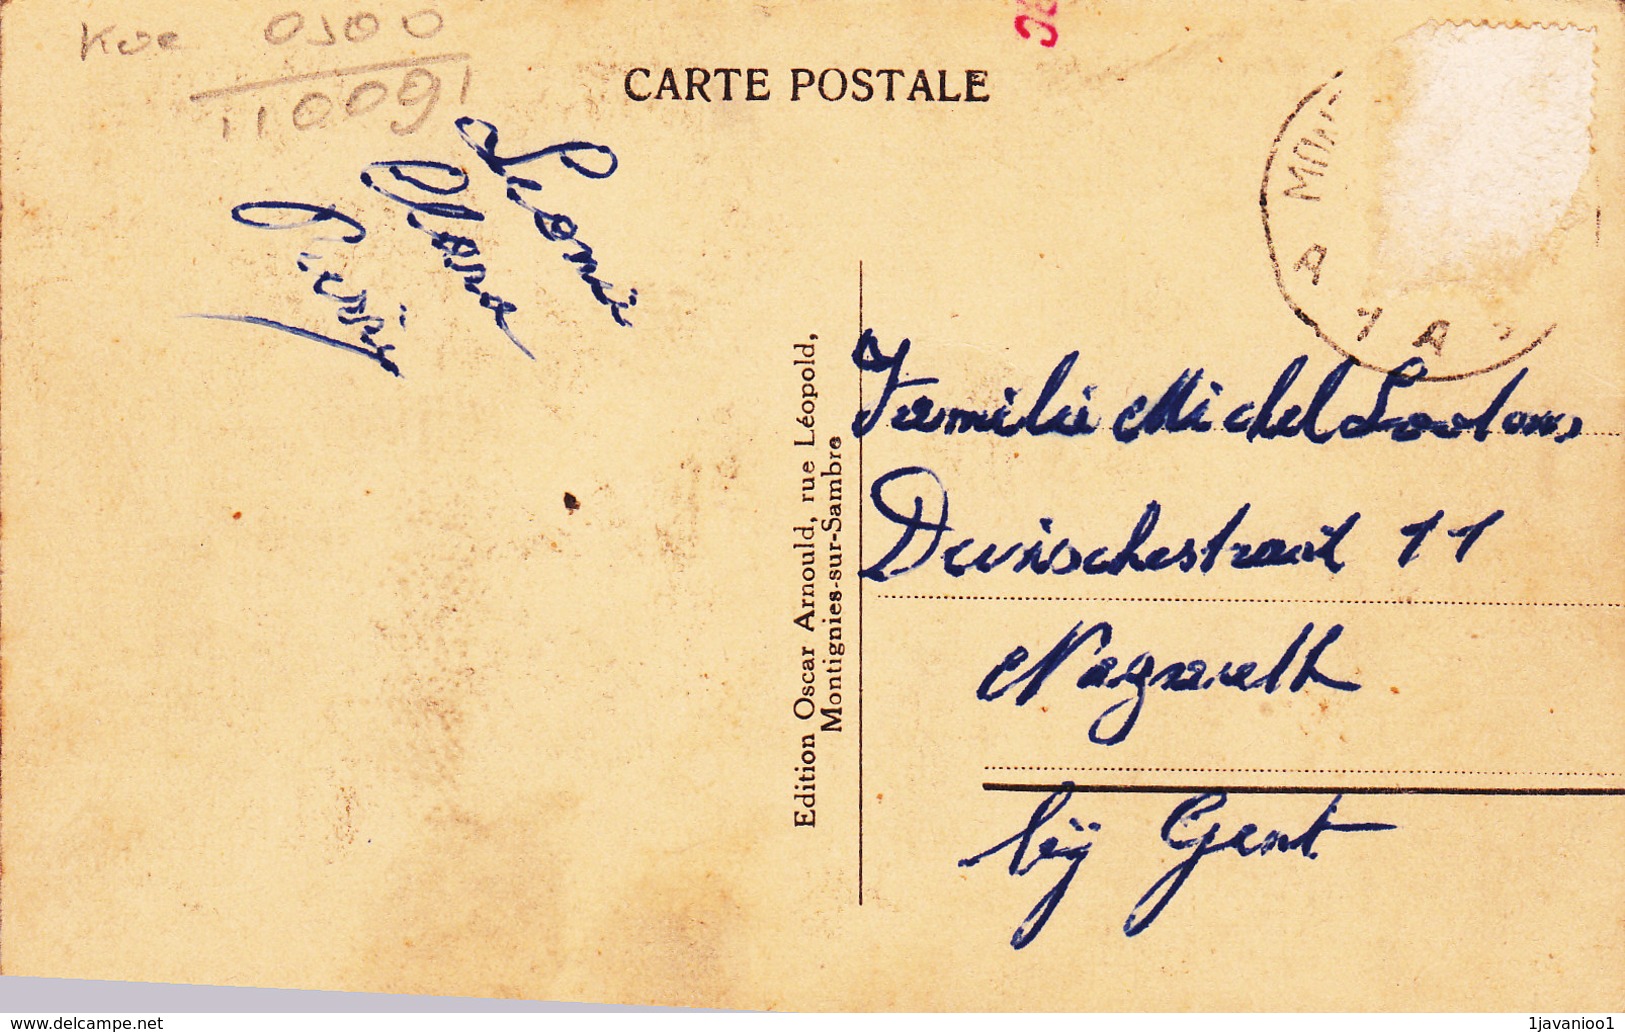 0500
CARTE POSTALE
110091
Leonie
Clara
A MON
A 1 A 1
Edition Oscar Arnould, rue Léopold,
Montignies-sur-Sambre
Familie Michel Lootens
11
Nazareth
bÿ Gent
www.delcampe.net
1javanioo1